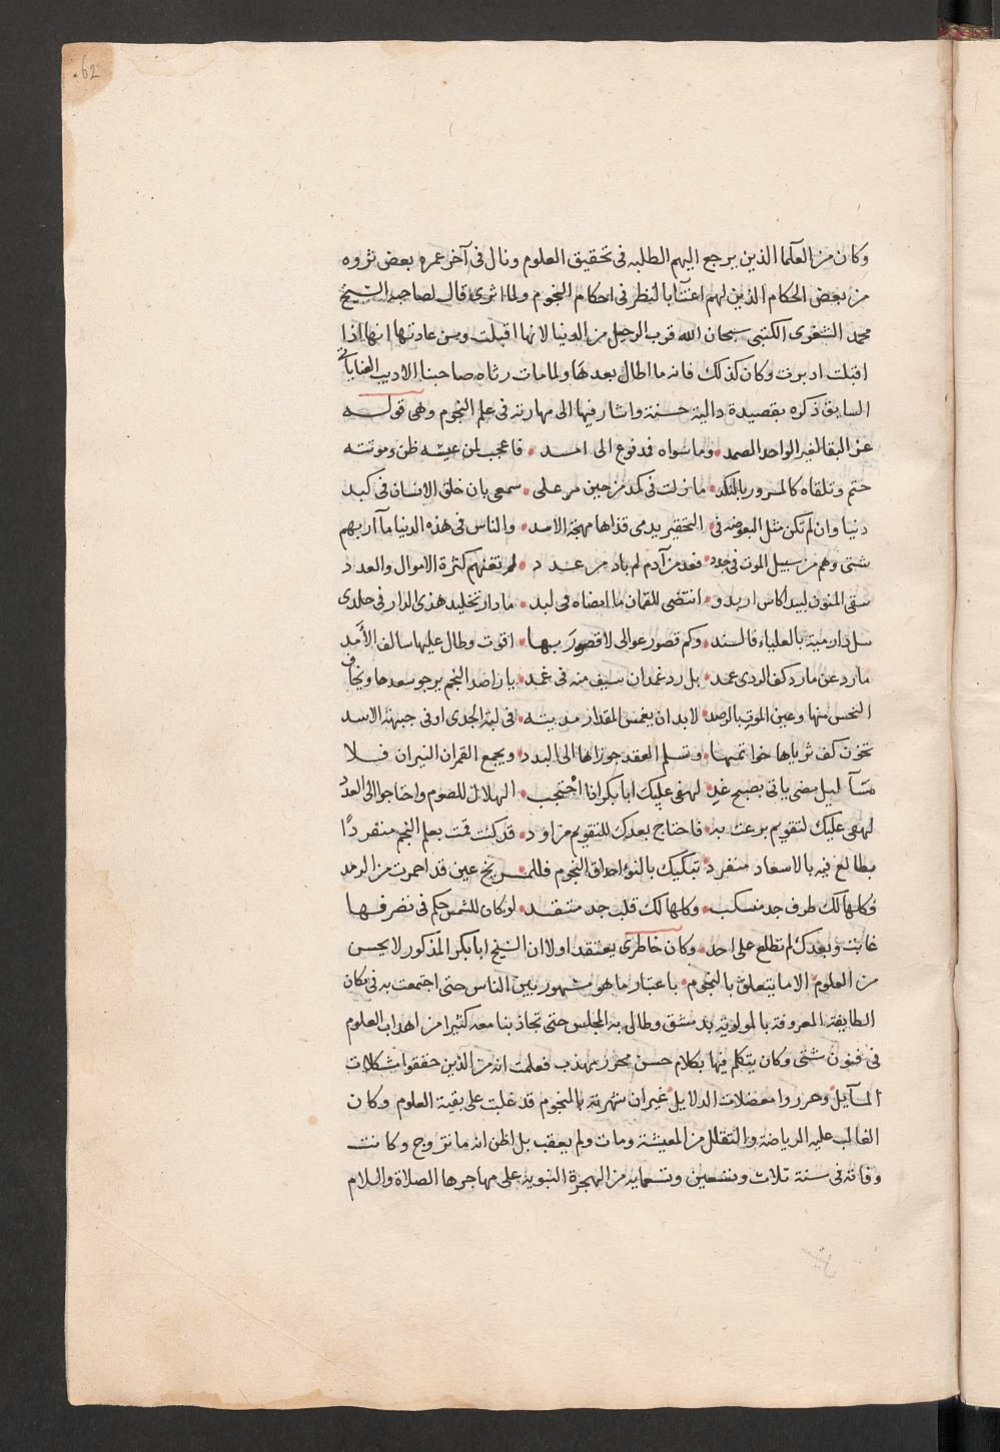 62
وكان من العلما الذين يرجع اليهم الطلبه فى تحقيق العلوم ونال فى آخر عمره بعض ثروه
من بعض الحكام الذين لهم اعتنا بالنظر فى احكام النجوم ولما اثرى قال لصاحبه الشيخ
محمد التقوى الكتبى سبحان الله قرب الرحيل من الدنيا لانها اقبلت ومن عادتها انها اذا
اقبلت ادبرت وكان كذلك فانه ما اطال بعدها ولما مات رثاه صاحبنا الاديب العناياتى
السابق ذكره بقصيدة دالية حسنة واشار فيها الى مهارته فى علم النجوم وهى قوله
عز البقا لغير الواحد الصمد • وما سواه فمدفوع الى امد • فاعجب لمن عيشه ظن وموتته
حتم وتلقاه كالمسرور بالنكد • ما زلت فى كمد من حين مر على • سمعى بان خلق الانسان فى كبد
دنيا وان لم تكن مثل البعوضه فى • التحقير يدمى قذاها مهجة الاسد • والناس فى هذه الدنيا مآربهم
شتى وهم من سبيل الموت فى جدد • فعد من آدم لم باد من عدد • لم تغنهم كثرة الاموال والعدد
سقى المنون لبيدا كاس اربد و • انتضى للقمان ما امضاه فى لبد • ما دار تخليد هذى الدار فى خلدى
سل دار مية بالعلياء فالسند • وكم قصور عوالى لا قصور بها • اقوت وطال عليها سالف الأمد
مارد عن مارد كف الردى عمد • بل رد غمدان سيف منه فى غمد • يا راصد النجم يرجو سعدها ويخاف
النحس منها وعين الموت بالرصد • لا بد ان يغمس المقدار مديته • فى لبة الجدى او فى جبهة الاسد
تخون كف ثرياها خواتمها • وتسلم العقد جوزاها الى البدد • ويجمع القمران النيران فلا
مسآ ليل مضى ياتى بصبح غد • لهفى عليك ابا بكر اذا احتجب • الهلال للصوم واحتاجوا الى العدد
لهفى عليك لتقويم برعت به • فاحتاج بعدك للتقويم من اود • قد كنت قمت بعلم النجم منفردًا
بطالع فيه بالاسعاد منفرد • تبكيك بالنؤ احداق النجوم فللمريخ عين قد احمرت من الرمد
وكلها لك طرف جد منسكب • وكلها لك قلب جد متقد • لو كان للشمس حكم فى تصرفها
غابت وبعدك لم تطلع على احد • وكان خاطرى يعتقد اولا ان الشيخ ابا بكر المذكور لا يحسن
من العلوم الا ما يتعلق بالنجوم • باعتبار ما هو مشهور بين الناس حتى اجتمعت به فى مكان
الطايفة المعروفة بالمولوية بدمشق وطال به المجلس حتى تجاذبنا معه كثيرا من اهداب العلوم
فى فنون شتى وكان يتكلم فيها بكلام حسن محرر مهذب فعلمت انه من الذين حققوا مشكلات
المسآيل وحرروا معضلات الدلايل غير ان شهرته بالنجوم قد غلبت على بقية العلوم وكان
الغالب عليه الرياضة والتقلل من المعيشة ومات ولم يعقب بل اظن انه ما تزوج وكانت
وفاته فى سنة ثلاث وتسعين وتسعمايه من الهجرة النبويه على مهاجرها الصلاة والسلام